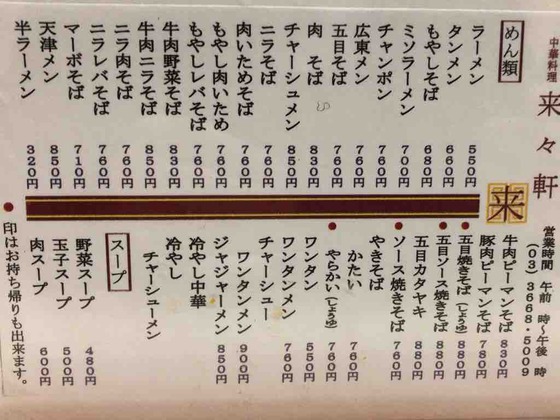 中華料理
来々軒
営業時間 午前 時〜午後 時
(03) 3668-5009
めん類
ラーメン 550円
タンメン 660円
もやしそば 680円
ミソラーメン 700円
チャンポン 760円
広東メン 760円
五目そば 760円
肉そば 830円
チャーシューメン 850円
ニラそば 760円
肉いためそば 760円
もやし肉いため 760円
もやしレバそば 760円
牛肉野菜そば 830円
牛肉ニラそば 850円
ニラ肉そば 760円
ニラレバそば 760円
マーボそば 710円
天津メン 850円
半ラーメン 320円
来
牛肉ピーマンそば 830円
豚肉ピーマンそば 780円
●五目焼きそば(しょうゆ) 880円
●五目ソース焼きそば 880円
五目カタヤキ 880円
●ソース焼きそば 760円
やきそば
かたい 760円
●やらかい(しょうゆ) 760円
ワンタン 550円
ワンタンメン 760円
チャーシュー
ワンタンメン 900円
ジャジャーメン 850円
冷やし中華
冷やし
チャーシューメン
スープ
野菜スープ 480円
玉子スープ 500円
肉スープ 600円
●印はお持ち帰りも出来ます。